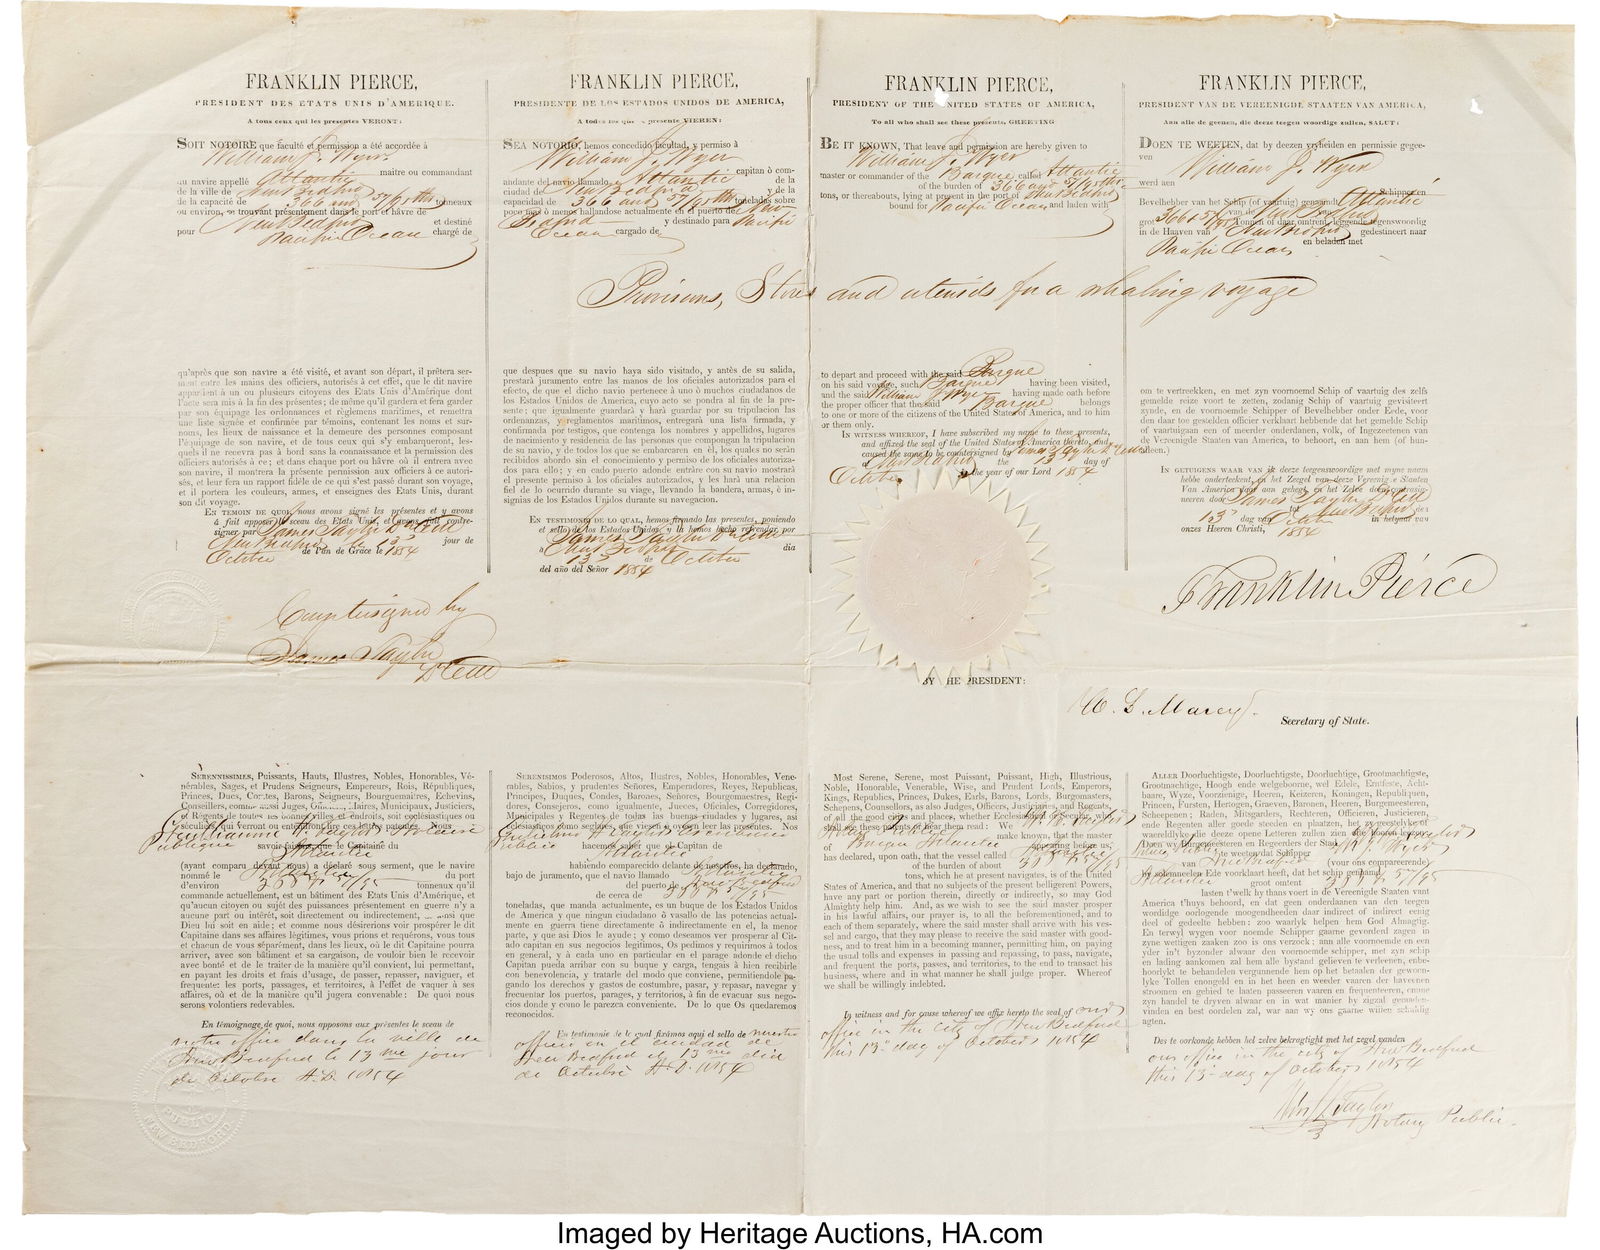 FRANKLIN PIERCE,
PRESIDENT DES ETATS UNIS D'AMERIQUE.
A tous ceux qui les presentes VERONT:
SOIT NOTOIRE que faculté et permission a été accordée à
William J. Wyer
maitre ou commandant
au navire appellé Atlantic
de la ville de New Bedford
de la capacité de 366 and 57/95ths tonneaux
ou environ, se trouvant présentement dans le port et hâvre de
New Bedford et destiné
pour Pacific Ocean chargé de
FRANKLIN PIERCE,
PRESIDENTE DE LOS ESTADOS UNIDOS DE AMERICA,
A todos los que presente VIEREN:
SEA NOTORIO, hemos concedido facultad, y permiso à
William J. Wyer
capitan ò com-
andante del navio llamado Atlantic de la
ciudad de New Bedford y de la
capacidad de 366 and 57/95ths toneladas sobre
poco mas ò menos hallandose actualmente en el puerto de New
Bedford y destinado para Pacific
Ocean cargado de
FRANKLIN PIERCE,
PRESIDENT OF THE UNITED STATES OF AMERICA,
To all who shall see these presents, GREETING
BE IT KNOWN, That leave and permission are hereby given to
William J. Wyer
master or commander of the Barque called Atlantic
of the burden of 366 and 57/95ths
tons, or thereabouts, lying at present in the port of New Bedford
bound for Pacific Ocean and laden with
FRANKLIN PIERCE,
PRESIDENT VAN DE VEREENIGDE STAATEN VAN AMERICA,
Aan alle de geenen, die deeze teegen woordige zullen, SALUT:
DOEN TE WEETEN, dat by deezen vryheiden en permissie gegee-
ven William J. Wyer
werd aen
Schipper en
Bevelhebber van het Schip (of vaartuig) genaamd Atlantic
van de New Bedford
groot 366 & 57/95 Tonnen of daar omtrent, leggende tegenswoordig
in de Haaven van New Bedford gedestineert naar
en beladen met
Pacific Ocean
Provisions, Stores and utensils for a whaling voyage
qu'après que son navire a été visité, et avant son départ, il prêtera ser-
ment entre les mains des officiers, autorisés à cet effet, que le dit navire
appartient à un ou plusieurs citoyens des Etats Unis d'Amérique dont
l'acte sera mis à la fin des présentes; de même qu'il gardera et fera garder
par son équipage les ordonnances et règlemens maritimes, et remettra
une liste signée et confirmée par témoins, contenant les noms et sur-
noms, les lieux de naissance et la demeure des personnes composant
l'équipage de son navire, et de tous ceux qui s'y embarqueront, les-
quels il ne recevra pas à bord sans la connaissance et la permission des
officiers autorisés à ce; et dans chaque port ou hâvre où il entrera avec
son navire, il montrera la présente permission aux officiers à ce autori-
sés, et leur fera un rapport fidèle de ce qui s'est passé durant son voyage,
et il portera les couleurs, armes, et enseignes des Etats Unis, durant
son dit voyage.
EN TEMOIN DE QUOI, nous avons signé les présentes et y avons
à fait apposer le sceau des Etats Unis, et avons fait contre-
signer par James Taylor D Coll
New Bedford le 13th jour de
October de l'an de Grace le 1854
que despues que su navio haya sido visitado, y antès de su salida,
prestará juramento entre las manos de los oficiales autorizados para el
efecto, de que el dicho navio pertenece à uno ò muchos ciudadanos de
los Estados Unidos de América, cuyo acto se pondra al fin de la pre-
sente; que igualmente guardará y hará guardar por su tripulacion las
ordenanzas, y reglamentos maritimos, y entregará una lista firmada, y
confirmada por testigos, que contenga los nombres y appellidos, lugares
de nacimiento y residencia de las personas que compongan la tripulacion
de su navio, y de todos los que se embarcaren en èl, los quales no serán
recibidos abordo sin el conocimiento y permiso de los oficiales autorizados
para ello; y en cado puerto adonde entràre con su navio mostrará
el presente permiso à los oficiales autorizados, y les hará una relacion
fiel de lo ocurrido durante su viage, llevando la bandera, armas, è in-
signias de los Estados Unidos durante su navegacion.
EN TESTIMONIO DE LO QUAL, hemos firmado las presentes, poniendo
el sello de los Estados Unidos, y la hemos hecho refrendar por
James Taylor D Coll
à New Bedford dia
13th de October
del año del Señor 1854
to depart and proceed with the said Barque
on his said voyage, such Barque having been visited,
and the said William J. Wyer having made oath before
the proper officer that the said Barque belongs
to one or more of the citizens of the United States of America, and to him
or them only.
IN WITNESS WHEREOF, I have subscribed my name to these presents,
and affixed the seal of the United States of America thereto, and
caused the same to be countersigned by James Taylor D Coll
at New Bedford the 13 day of
October in the year of our Lord 1854
om te vertreekken, en met zyn voornoemd Schip of vaartuig des zelfs
gemelde reize voort te zetten, zodanig Schip of vaartuig gevisiteert
zynde, en de voornoemde Schipper of Bevelhebber onder Eede, voor
den daar toe gestelden officier verklaart hebbende dat het gemelde Schip
of vaartuigaan een of meerder onderdanen, volk, of Ingezeetenen van
de Vereenigde Staaten van America, to behoort, en aan hem (of hun-
alleen.)
IN GETUIGENS WAAR VAN ik deeze teegenswoordige met myne naam
hebbe onderteekent, en het Zeegel van deeze Vereenig e Staaten
Van America daar aan gehegt, en het Zelve doen contrasin-
neren door James Taylor D Coll
tot New Bedford den
13th dag van Octob in hetjaar van
onzes Heeren Christi, 1854
Countersigned by
James Taylor
D Coll
Franklin Pierce
BY HE PRESIDENT:
W. L. Marcy. Secretary of State.
SERENNISSIMES, Puissants, Hauts, Illustres, Nobles, Honorables, Vé-
nérables, Sages, et Prudens Seigneurs, Empereurs, Rois, Républiques,
Princes, Ducs, Comtes, Barons, Seigneurs, Bourguemaitres, Echevins,
Conseillers, comme aussi Juges, Officiers, Maires, Municipaux, Justiciers,
et Régents de toutes les bonnes villes et endroits, soit ecclésiastiques ou
séculiers, qui verront ou entendront lire ces lettres patentes. Nous
William H. Taylor Notaire
Publique savoir faisons que le Capitaine du
Atlantic
(ayant comparu devant nous) a déclaré sous serment, que le navire
nommé le Atlantic du port
d'environ 366 & 57/95 tonneaux qu'il
commande actuellement, est un bâtiment des Etats Unis d'Amérique, et
qu'aucun citoyen ou sujet des puissances présentement en guerre n'y a
aucune part ou intérêt, soit directement ou indirectement, ainsi que
Dieu lui soit en aide; et comme nous désirerions voir prospérer le dit
Capitaine dans ses affaires légitimes, vous prions et requérons, vous tous
et chacun de vous séparément, dans les lieux, où le dit Capitaine pourra
arriver, avec son bâtiment et sa cargaison, de vouloir bien le recevoir
avec bonté et de le traiter de la manière qu'il convient, lui permettant,
en payant les droits et frais d'usage, de passer, repasser, naviguer, et
frequente: les ports, passages, et territoires, à l'effet de vaquer à ses
affaires, où et de la manière qu'il jugera convenable: De quoi nous
serons volontiers redevables.
En témoignage de quoi, nous apposons aux présentes le sceau de
notre office dans la ville de
New Bedford le 13me jour
de Octobre A.D. 1854
SERENISIMOS Poderosos, Altos, Ilustres, Nobles, Honorables, Vene-
rables, Sabios, y prudentes Señores, Emperadores, Reyes, Republicas,
Principes, Duques, Condes, Barones, Señores, Bourgomaestres, Regi-
dores, Consejeros, como igualmente, Jueces, Oficiales, Corregidores,
Municipales y Regentes de todas las buenas ciudades y lugares, asi
eclesiasticos como seglares, que viesen ò viesen leer las presentes. Nos
Publico hacemos saber que el Capitan de
Atlantic
habiendo comparecido delante de nosotros, ha declarado,
bajo de juramento, que el navio llamado Atlantic
del puerto de New Bedford
de cerca de 366 & 57/95
toneladas, que manda actualmente, es un buque de los Estados Unidos
de America y que ningun ciudadano ò vasallo de las potencias actual-
mente en guerra tiene directamente ò indirectamente en el, la menor
parte, y que asi Dios le ayude; y como deseamos ver prosperar al Ci-
tado capitan en sus negocios legitimos, Os pedimos y requirimos à todos
en general, y à cada uno en particular en el parage adonde el dicho
Capitan pueda arribar con su buque y carga, tengais à bien recibirle
con benevolencia, y tratarle del modo que conviene, permitiendole pa-
gando los derechos y gastos de costumbre, pasar, y repasar, navegar y
frecuentar los puertos, parages, y territorios, à fin de evacuar sus nego-
cios donde y como le parezca conveniente. De lo que Os quedaremos
reconocidos.
En testimonio de lo qual fixámos aqui el sello de nuestro
officio en el ciudad de
New Bedford el 13mo dia
de Octubre A.D. 1854
Most Serene, Serene, most Puissant, Puissant, High, Illustrious,
Noble, Honorable, Venerable, Wise, and Prudent Lords, Emperors,
Kings, Republics, Princes, Dukes, Earls, Barons, Lords, Burgomasters,
Schepens, Counsellors, as also Judges, Officers, Justiciaries, and Regents,
of all the good cities and places, whether Ecclesiastical or Secular, who
shall see these presents or hear them read: We
Notary Public make known, that the master
of Barque Atlantic appearing before us,
has declared, upon oath, that the vessel called Atlantic
of the burden of about 366 & 57/95
tons, which he at present navigates, is of the United
States of America, and that no subjects of the present belligerent Powers,
have any part or portion therein, directly or indirectly, so may God
Almighty help him. And, as we wish to see the said master prosper
in his lawful affairs, our prayer is, to all the beforementioned, and to
each of them separately, where the said master shall arrive with his ves-
sel and cargo, that they may please to receive the said master with good-
ness, and to treat him in a becoming manner, permitting him, on paying
the usual tolls and expenses in passing and repassing, to pass, navigate,
and frequent the ports, passes, and territories, to the end to transact his
business, where and in what manner he shall judge proper. Whereof
we shall be willingly indebted.
In witness and for cause whereof we affix hereto the seal of our
office in the city of New Bedford
this 13th day of October 1854
ALLER Doorluchtigste, Doorluchtigste, Doorluchtige, Grootmachtigste,
Grootmachtige, Hoogh ende welgeboorne, wel Edele, Erntfeste, Acht-
baare, Wyze, Voorzienige, Heeren, Keizeren, Koningen, Republiquen,
Princen, Fursten, Hertogen, Graeven, Baronen, Heeren, Burgemeesteren,
Scheepenen; Raden, Mitsgarders, Rechteren, Officieren, Justicieren,
ende Regenten aller goede steeden en plaatsen, het zy geestelyke of
waereldlyke die deeze opene Letteren zullen zien ofte hooren leezen
Doen wy Burgemeesteren en Regeerders der Stad
te weten, dat Schipper
van New Bedford (voor ons compareerende)
by solemneelen Ede verklaart heeft, dat het schip genaamd
Atlantic groot omtent 366 & 57/95
lasten t'welk hy thans voert in de Vereenigde Staaten van
America t'huys behoord, en dat geen onderdaanen van den teegen
wordidge oorlogende moogendheeden daar indirect of indirect eenig
deel of gedeelte hebben: zoo waarlyk helpen hem God Almagtig.
En terwyl wygen voor noemde Schipper gaarne gevorderd zagen in
zyne wettigen zaaken zoo is ons verzoek; ann alle voornoemde en een
yder in't byzonder alwaar den voornoemde schipper, met zyn schip
en lading aankomen zal hem alle bystand gelieven te verleenen, enbe-
hoorlykt te behandelen vergunnende hem op het betaalen der gewoon-
lyke Tollen onongeld en in het heen en weeder varen der haveenen
stroomen en gebied te laaten passeeren varen en frequenteeren, omme
zyn handel te dryven alwaar en in wat manier by zigzal geraaden-
vinden en best oordelen zal, war aan wy ons gaarne willen schuldig
agten.
Des te oorkonde hebben het zelve bekragtight met het zegel vanden
our office in the city of New Bedford
this 13th day of October 1854
Wm H Taylor
Notary Public.
PUBLIC
NEW BEDFORD
Imaged by Heritage Auctions, HA.com